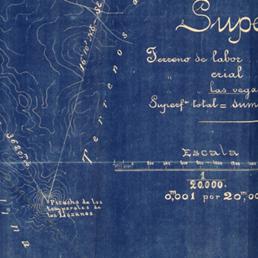 Supe
Terreno de labor
erial
las vega
Superfª total = sum
Escala
1
20.000.
0,001 por 20,00
Terrenos
Picacho de los
temporales de
los Lozanos